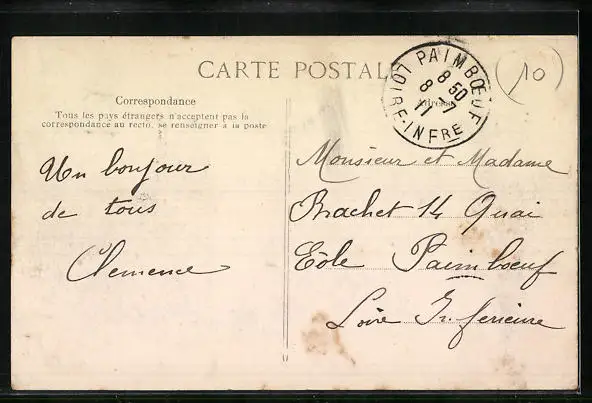 CARTE POSTALE
PAIMBŒUF
LOIRE-INFRE
8 50
8 -7
11
(10)
Correspondance
Tous les pays étrangers n'acceptent pas la
correspondance au recto, se renseigner à la poste
Adresse
Un bonjour
de tous
Clemence
Monsieur et Madame
Brachet 14 Quai
Eôle Paimboeuf
Loire Inferieure